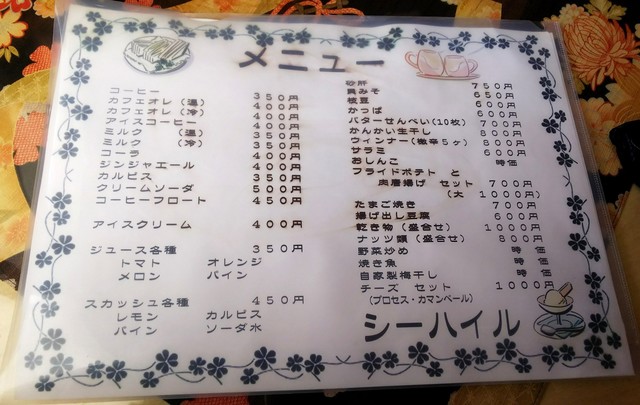 メニュー
コーヒー 350円
カフェオレ(温) 400円
カフェオレ(冷) 400円
アイスコーヒー 400円
ミルク (温) 350円
ミルク (冷) 400円
コーラ 400円
ジンジャエール 400円
カルピス 350円
クリームソーダ 500円
コーヒーフロート 450円
アイスクリーム 400円
ジュース各種 350円
トマト オレンジ
メロン パイン
スカッシュ各種 450円
レモン カルピス
パイン ソーダ水
砂肝 750円
貝みそ 650円
枝豆 600円
かっぱ 600円
バターせんべい(10枚) 700円
かんかい生干し 800円
ウィンナー(激辛5ヶ) 800円
サラミ 600円
おしんこ 時価
フライドポテト と
肉唐揚げ セット 700円
(大 1000円)
たまご焼き 700円
揚げ出し豆腐 600円
乾き物(盛合せ) 1000円
ナッツ類(盛合せ) 800円
野菜炒め 時価
焼き魚 時価
自家製梅干し 時価
チーズ セット 1000円
(プロセス・カマンベール)
シーハイル